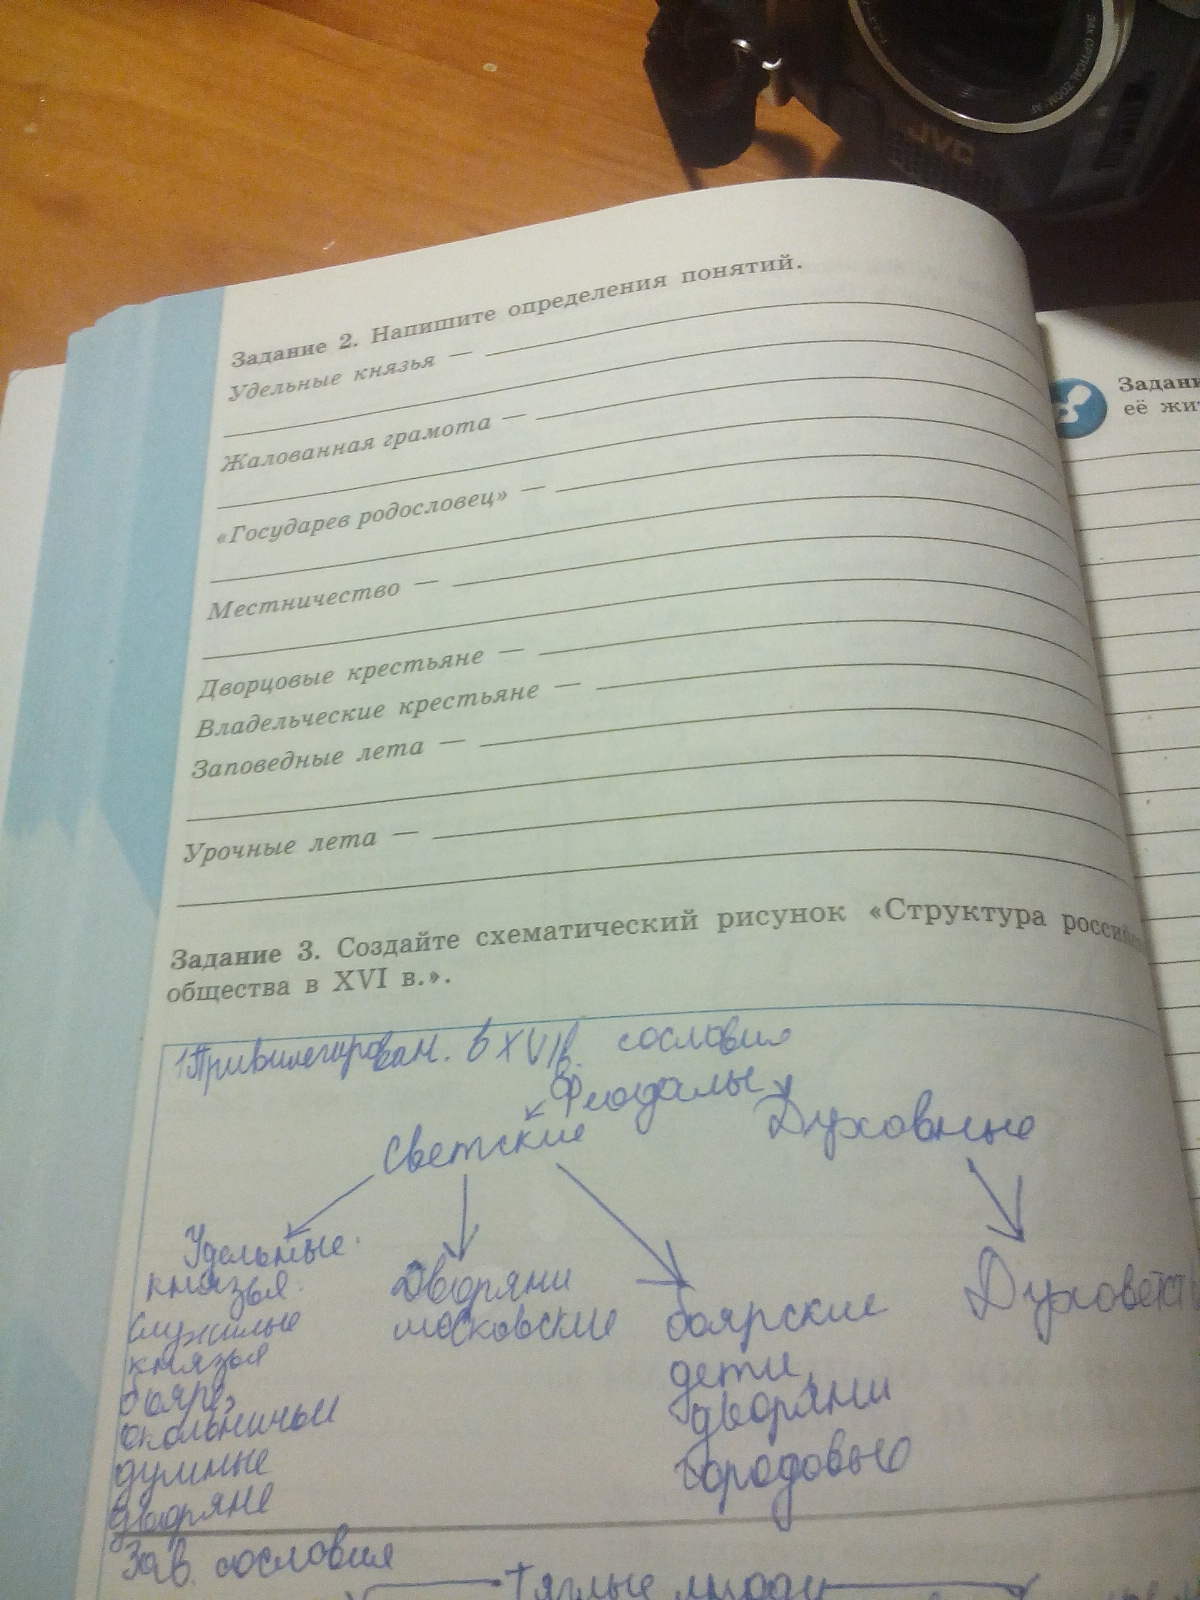 34x OPTICAL ZOOM AF
JVC
Задание 2. Напишите определения понятий.
Удельные князья —
Жалованная грамота —
«Государев родословец» —
Местничество —
Дворцовые крестьяне —
Владельческие крестьяне —
Заповедные лета —
Урочные лета —
Задание 3. Создайте схематический рисунок «Структура россий
общества в XVI в.».
1 Привилегирован. в XVIв. сословия
Феодалы
Светские Духовные
Удельные
князья
служилые
князья
бояре
окольничьи
думные
дворяне
Дворяни
московские
боярские
дети
дворяни
городовые
Духоветст
Зав. сословия
Тяглые люди
Задани
её жит